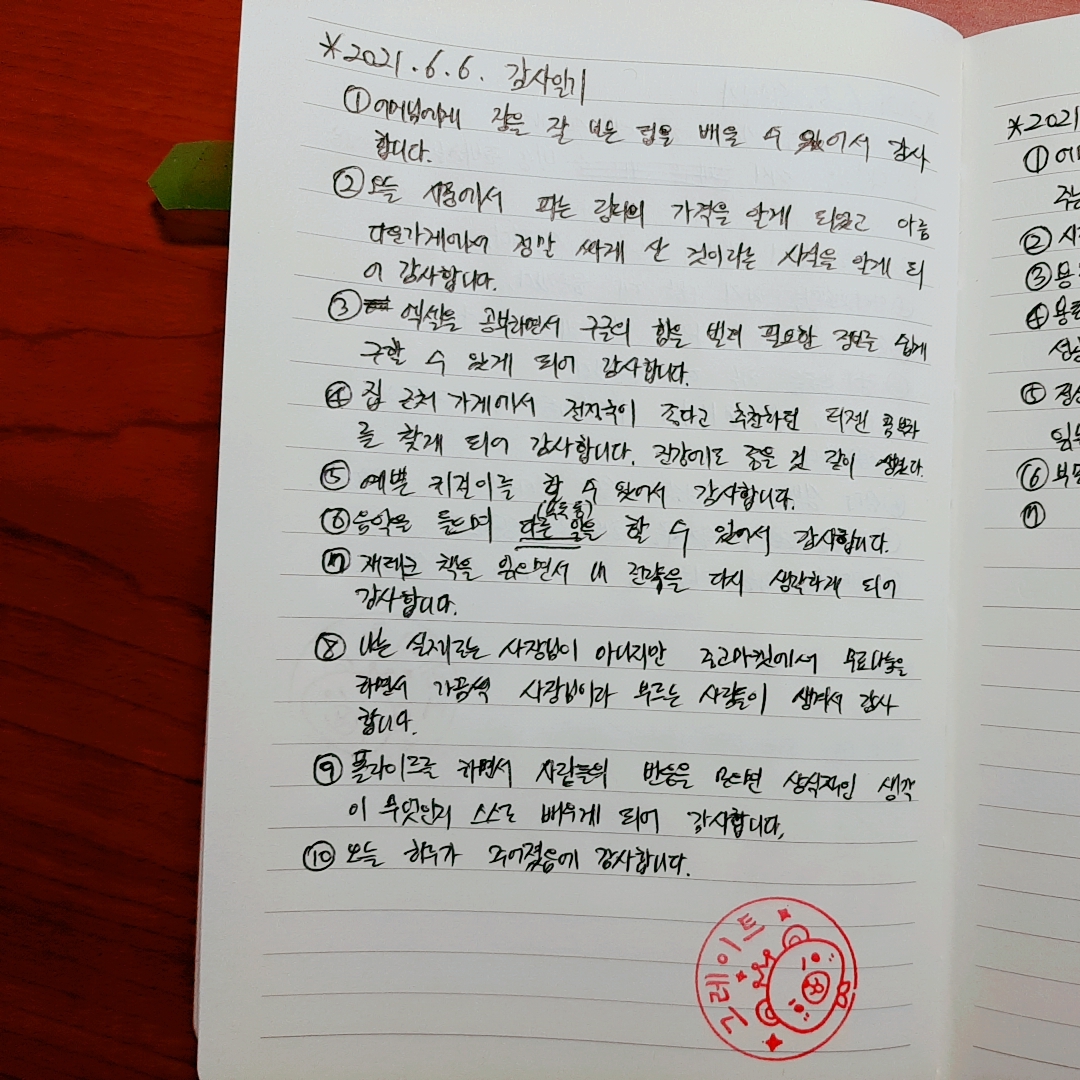 *2021.6.6. 감사일기
① 어머님에게 장을 잘 보는 팁을 배울 수 있어서 감사
합니다.
② 오늘 시중에서 파는 의 가격을 알게 되었고 아름
다운가게에서 정말 싸게 산 것이라는 사실을 알게 되
어 감사합니다.
③ 엑셀을 공부하면서 구글의 힘을 빌려 필요한 정보를 쉽게
구할 수 있게 되어 감사합니다.
④ 집 근처 가게에서 이 좋다고 추천하던
를 찾게 되어 감사합니다. 건강에도 좋을 것 같이 생겼다.
⑤ 예쁜 귀걸이를 할 수 있어서 감사합니다.
⑥ 음악을 들으며 다른 일을 할 수 있어서 감사합니다.
⑦ 재테크 책을 읽으면서 내 전략을 다시 생각하게 되어
감사합니다.
⑧ 나는 실제로는 사장님이 아니지만 중고마켓에서 무료나눔을
하면서 가끔씩 사장님이라 부르는 사람들이 생겨서 감사
합니다.
⑨ 하면서 사람들의 반응을 보으면 상식적인 생각
이 무엇인지 스스로 배우게 되어 감사합니다.
⑩ 오늘 하루가 주어졌음에 감사합니다.
그레이트
*2021
①
②
③
④
⑤
⑥
⑦